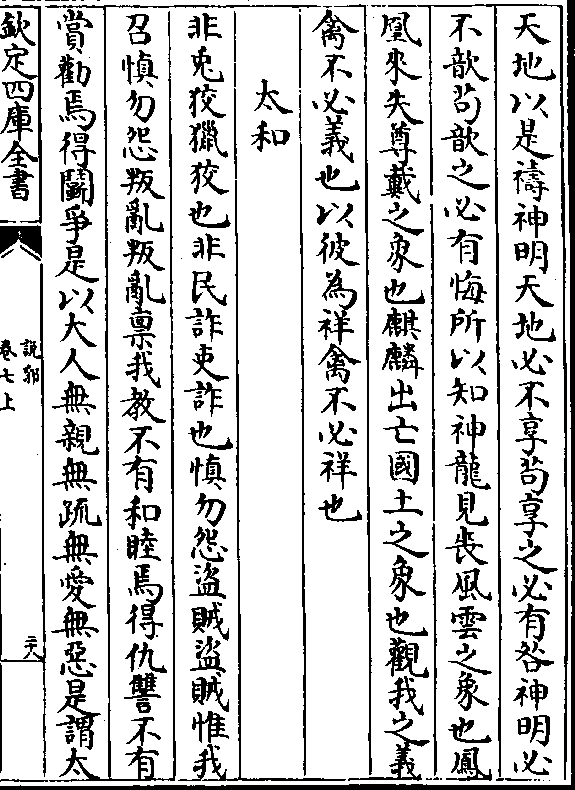 天地以是禱神明天地必不享苟享之必有咎神明必
不歆苟歆之必有悔所以知神龍見喪風雲之象也鳳
凰來失尊戴之象也麒麟出亡國土之象也觀我之義
禽不必義也以彼為祥禽不必祥也
太和
非兎狡獵狡也非民詐吏詐也慎勿怨盜賊盜賊惟我
召慎勿怨叛亂叛亂禀我教不有和睦焉得仇讐不有
賞勸焉得鬭爭是以大人無親無疏無愛無惡是謂太
欽定四庫全書
說郛
卷七上
二八